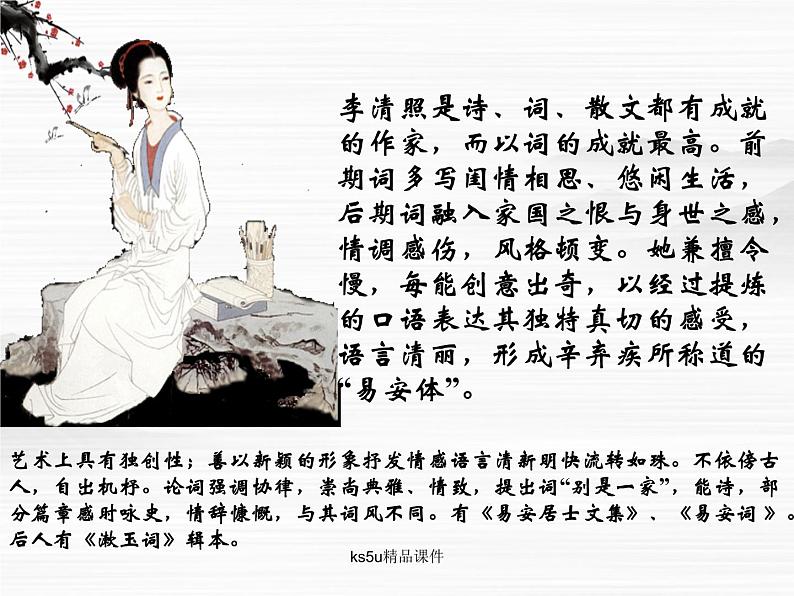 李清照是诗、词、散文都有成就
的作家，而以词的成就最高。前
期词多写闺情相思、悠闲生活，
后期词融入家国之恨与身世之感，
情调感伤，风格顿变。她兼擅令
慢，每能创意出奇，以经过提炼
的口语表达其独特真切的感受，
语言清丽，形成辛弃疾所称道的
“易安体”。
艺术上具有独创性；善以新颖的形象抒发情感语言清新明快流转如珠。不依傍古
人，自出机杼。论词强调协律，崇尚典雅、情致，提出词“别是一家”，能诗，部
分篇章感时咏史，情辞慷慨，与其词风不同。有《易安居士文集》、《易安词 》。
后人有《漱玉词》辑本。
ks5u精品课件